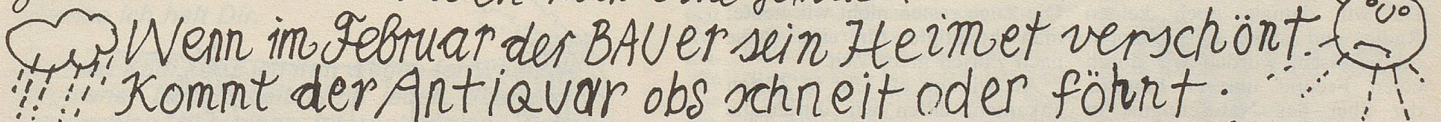 Wenn im Februar der BAUer sein Heimet verschönt.
Kommt der Antiquar obs schneit oder föhnt.